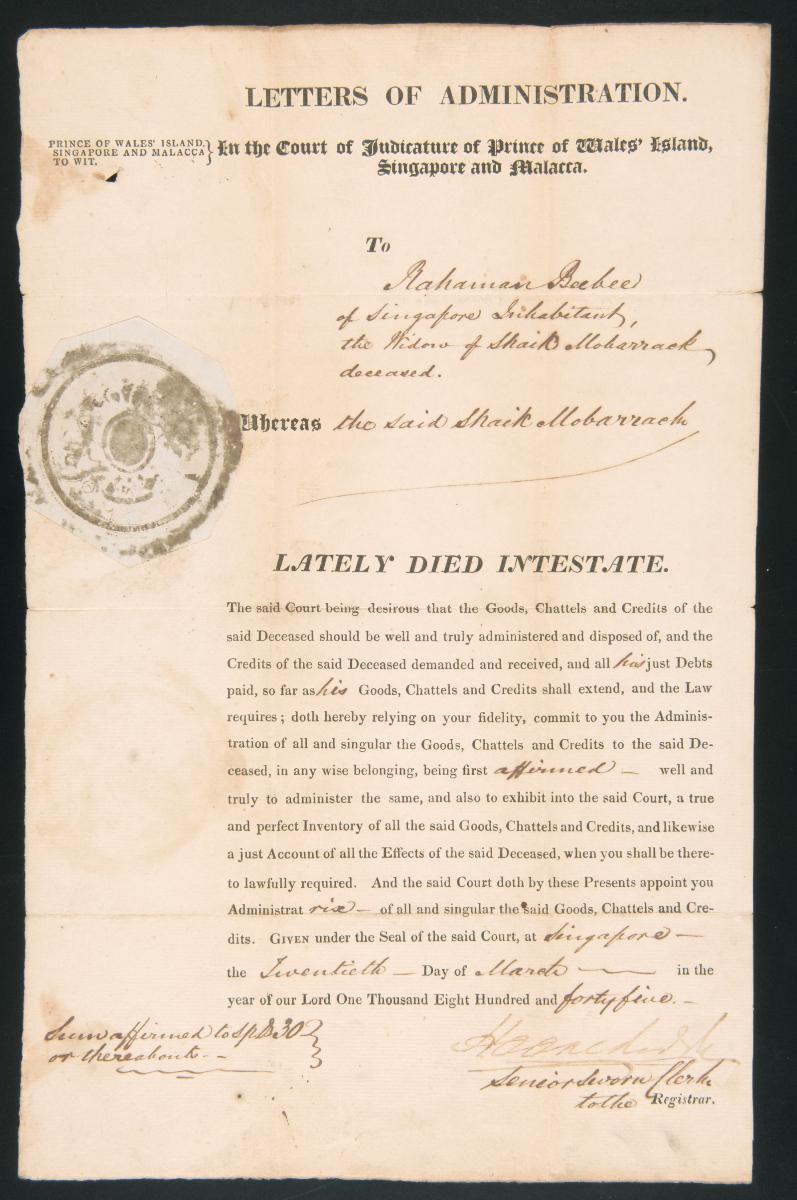 LETTERS OF ADMINISTRATION.
PRINCE OF WALES' ISLAND,
SINGAPORE AND MALACCA
TO WIT.
In the Court of Judicature of Prince of Wales' Island,
Singapore and Malacca.
To
Rahaman Beebee
of Singapore Inhabitant,
the Widow of Shaik Mobarrack,
deceased.
Whereas the said Shaik Mobarrack
LATELY DIED INTESTATE.
The said Court being desirous that the Goods, Chattels and Credits of the
said Deceased should be well and truly administered and disposed of, and the
Credits of the said Deceased demanded and received, and all his just Debts
paid, so far as his Goods, Chattels and Credits shall extend, and the Law
requires; doth hereby relying on your fidelity, commit to you the Adminis-
tration of all and singular the Goods, Chattels and Credits to the said De-
ceased, in any wise belonging, being first affirmed — well and
truly to administer the same, and also to exhibit into the said Court, a true
and perfect Inventory of all the said Goods, Chattels and Credits, and likewise
a just Account of all the Effects of the said Deceased, when you shall be there-
to lawfully required. And the said Court doth by these Presents appoint you
Administrat rix — of all and singular the said Goods, Chattels and Cre-
dits. GIVEN under the Seal of the said Court, at Singapore —
the Twentieth — Day of March — in the
year of our Lord One Thousand Eight Hundred and forty five. —
Sum affirmed to Sp.D 30
or thereabouts —
Senior Sworn Clerk
to the Registrar.